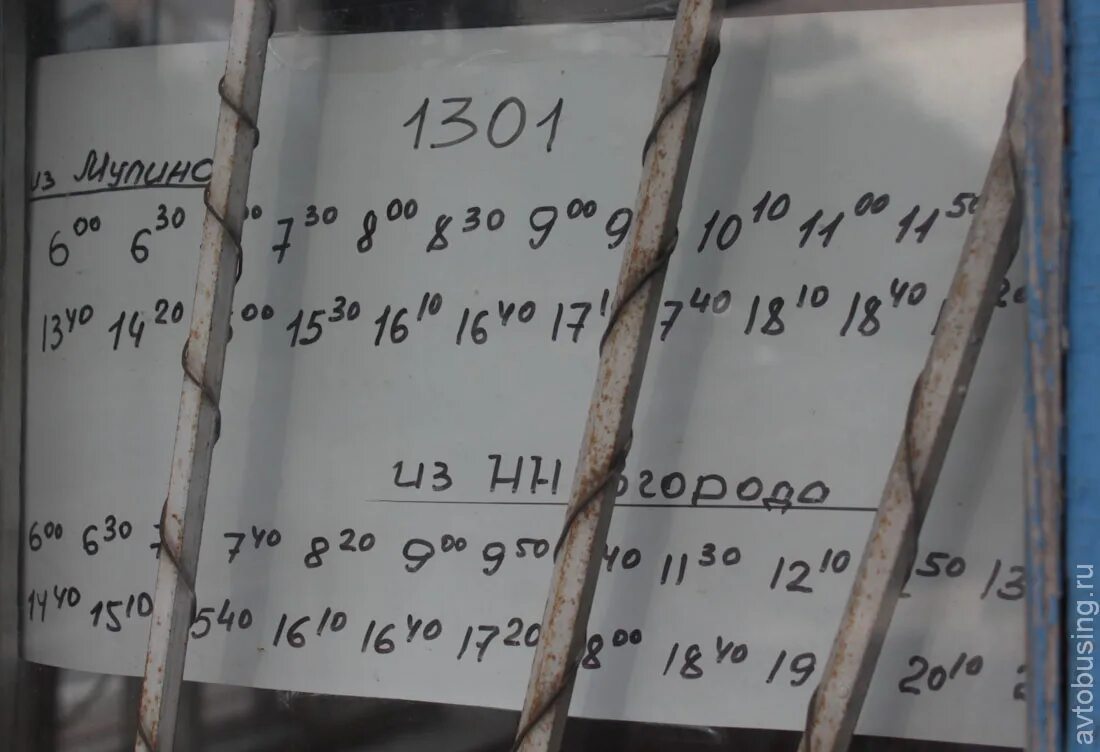 1301
из Мулино
6⁰⁰ 6³⁰ 7³⁰ 8⁰⁰ 8³⁰ 9⁰⁰ 9 10¹⁰ 11⁰⁰ 11⁵⁰
13⁴⁰ 14²⁰ 15³⁰ 16¹⁰ 16⁴⁰ 17 7⁴⁰ 18¹⁰ 18⁴⁰ ²⁰
из НН
6⁰⁰ 6³⁰ 7⁴⁰ 8²⁰ 9⁰⁰ 9⁵⁰ ⁴⁰ 11³⁰ 12¹⁰ ⁵⁰ 13
14⁴⁰ 15¹⁰ 5⁴⁰ 16¹⁰ 16⁴⁰ 17²⁰ 8⁰⁰ 18⁴⁰ 19 20¹⁰
avtobusing.ru